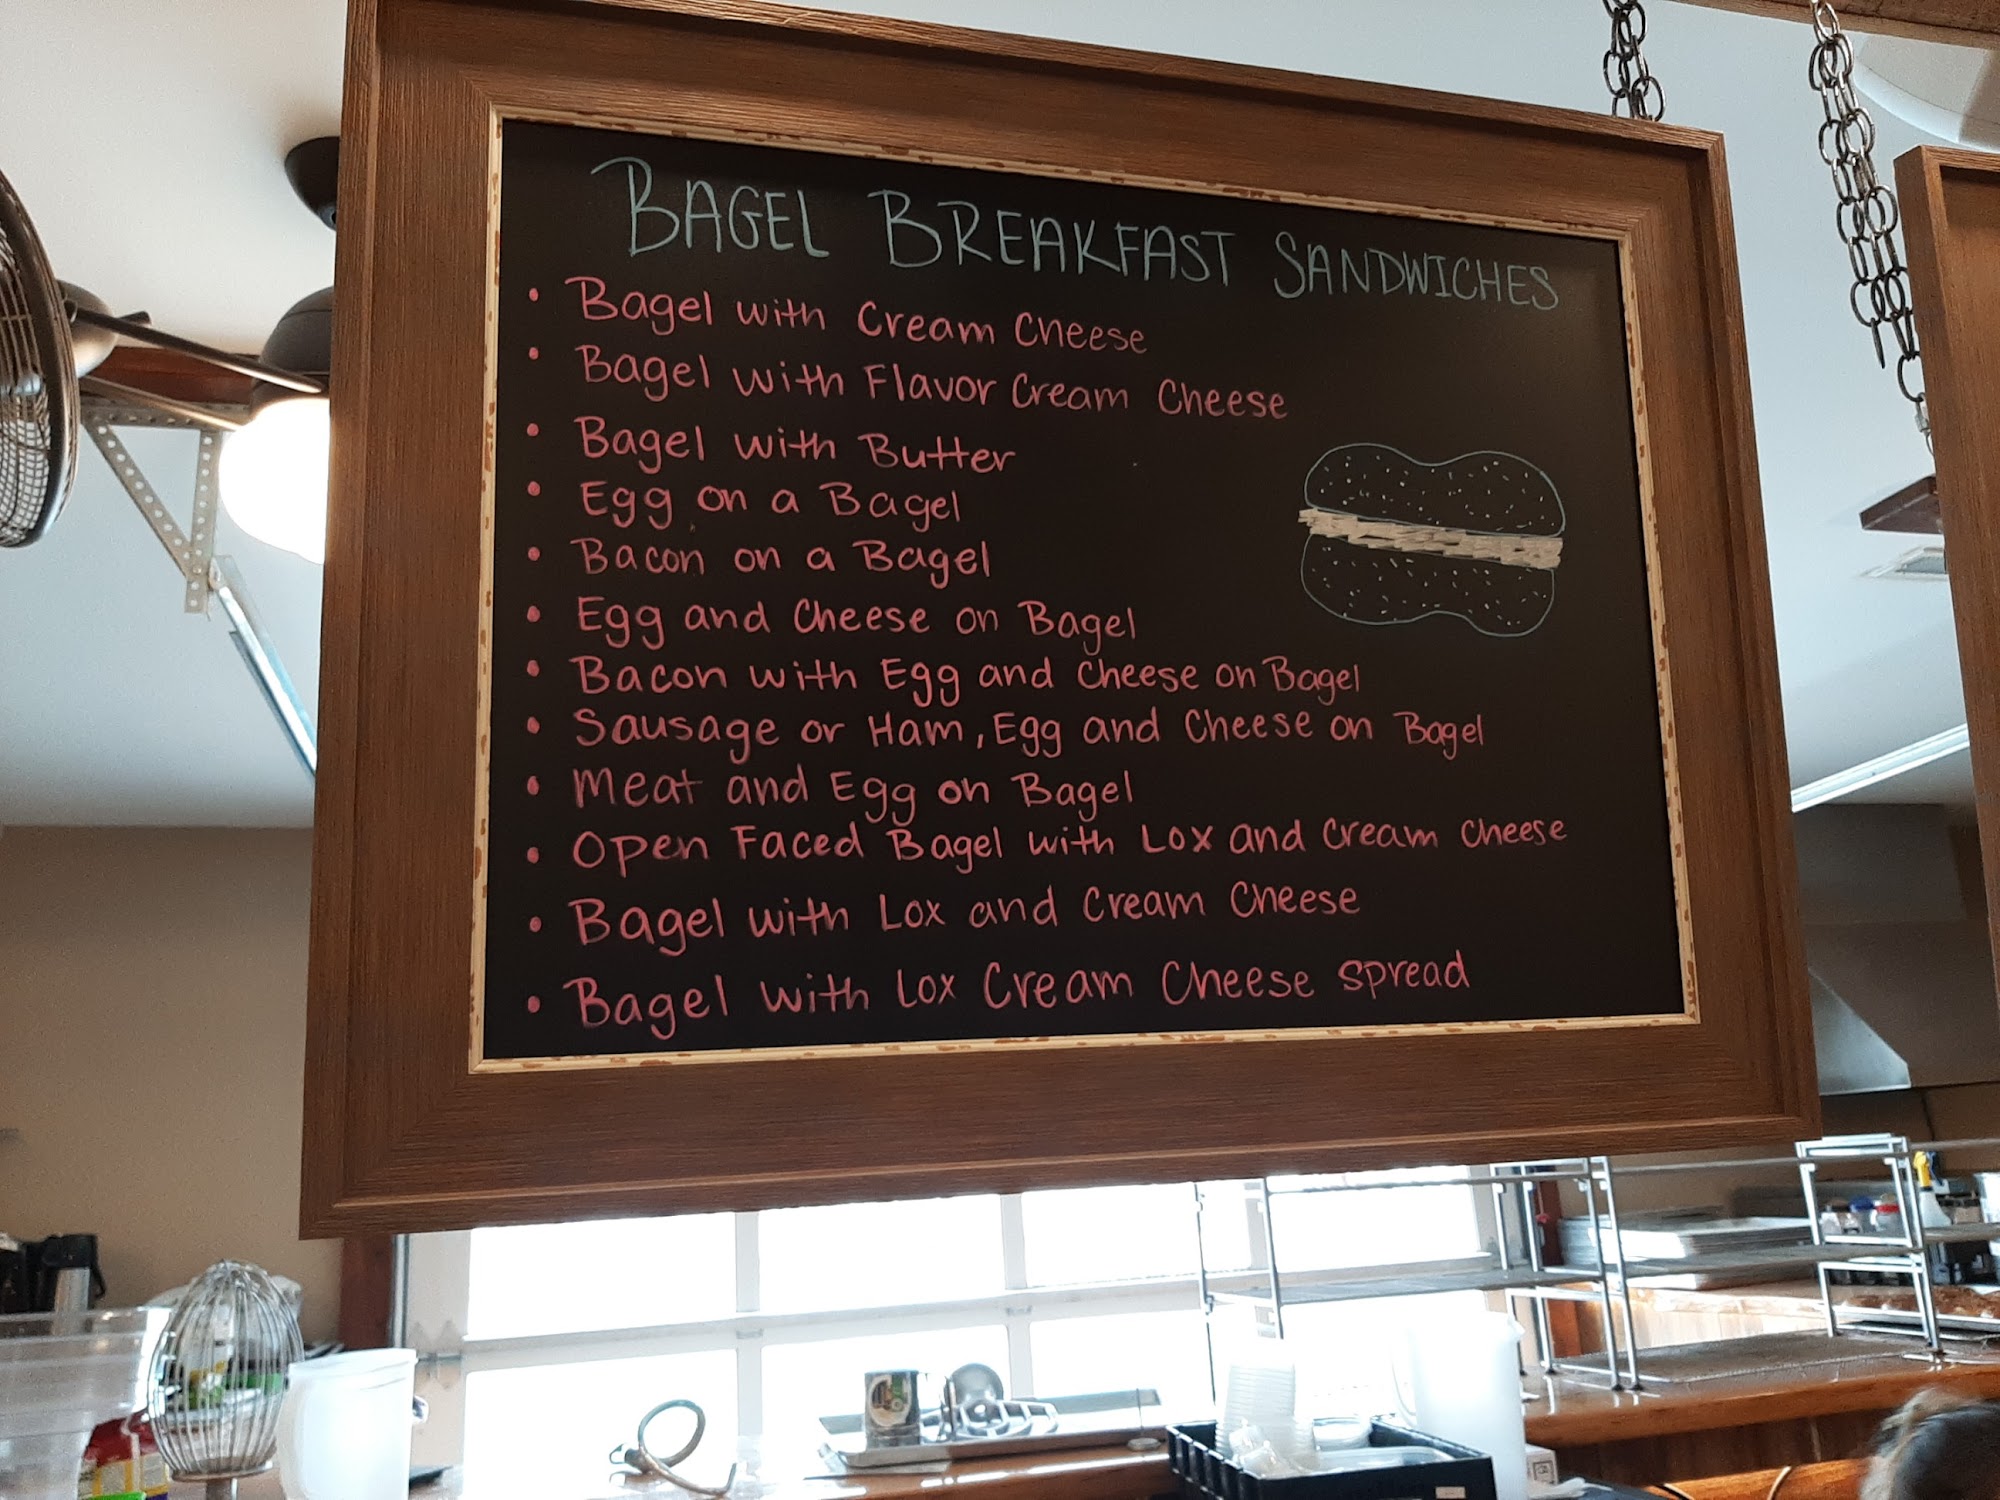 BAGEL BREAKFAST SANDWICHES
• Bagel with Cream Cheese
• Bagel with Flavor Cream Cheese
• Bagel with Butter
• Egg on a Bagel
• Bacon on a Bagel
• Egg and Cheese on Bagel
• Bacon with Egg and Cheese on Bagel
• Sausage or Ham, Egg and Cheese on Bagel
• Meat and Egg on Bagel
• Open Faced Bagel with Lox and Cream Cheese
• Bagel with Lox and Cream Cheese
• Bagel with Lox Cream Cheese Spread